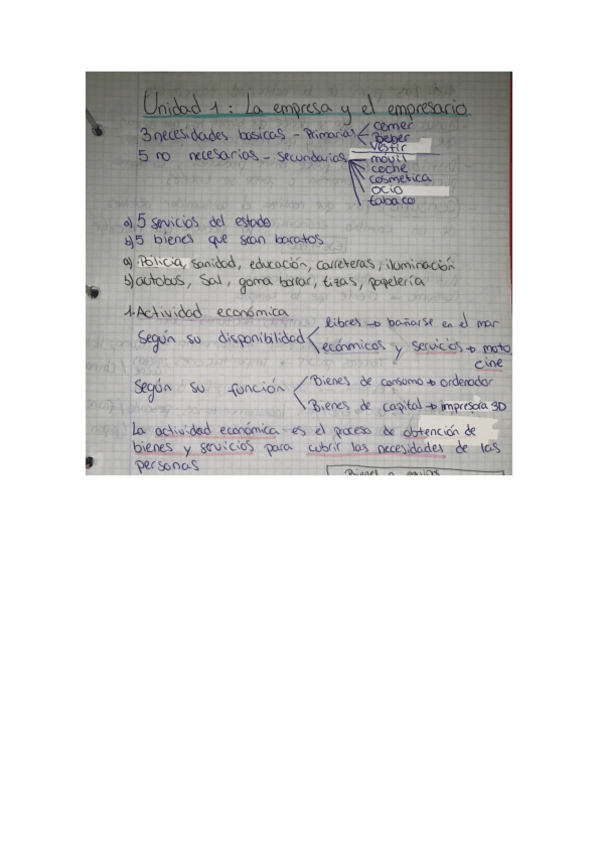 Unidad 1: La empresa y el empresario
3 necesidades basicas - Primarias
comer
Beber
vestir
5 no necesarias - secundarias
móvil
coche
cosmética
ocio
tabaco
a) 5 servicios del estado
b) 5 bienes que sean baratos
a) Policía, sanidad, educación, carreteras, iluminación
b) autobus, sal, goma borrar, tizas, papelería
1. Actividad económica
Según su disponibilidad
libres → bañarse en el mar
económicos y servicios → moto
cine
Según su función
Bienes de consumo → ordenador
Bienes de capital → impresora 3D
La actividad económica es el proceso de obtención de
bienes y servicios para cubrir las necesidades de las
personas